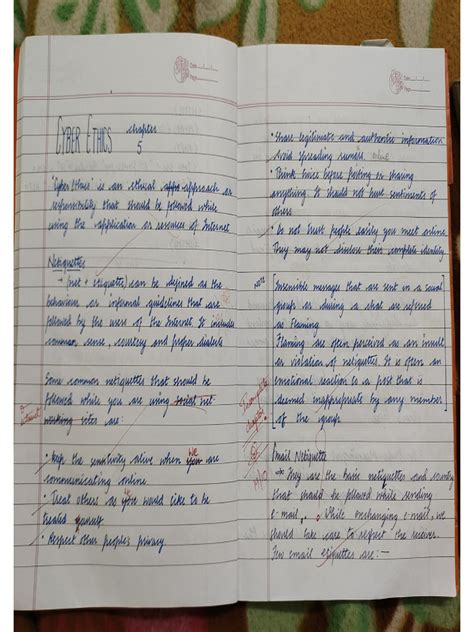 CYBER ETHICS chapter 5
"Cyber Ethics" is an ethical approach or
responsibility that should be followed while
using the application or resources of Internet
Netiquettes
→ (net + etiquette) can be defined as the
behaviour or informal guidelines that are
followed by the users of the Internet. It includes
common sense, courtesy and proper
Some common netiquettes that should be
followed while you are using social net
internet
working sites are:
• Keep the sensitivity alive when you are
we
communicating online.
• Treat others as you would like to be
we
treated yourself
• Respect other people's privacy.
Date
Page
• Share legitimate and authentic information
Avoid spreading rumors online
• Think twice before posting or sharing
anything. It should not hurt sentiments of
others
• Do not trust people easily you meet online.
They may not disclose their complete identity.
NOTE
Insensible messages that are sent in a social
group or during a chat are referred
as Flaming
Flaming are often perceived as an insult
or violation of netiquettes. It is often an
emotional reaction to a post that is
deemed inappropriate by any member
of the group.
Incomplete
chapter
Email Netiquette
→ They are the basic netiquettes and courtesy
that should be followed while sending
e-mail. While exchanging e-mail, we
should take care to respect the receiver.
Few email etiquettes are :-